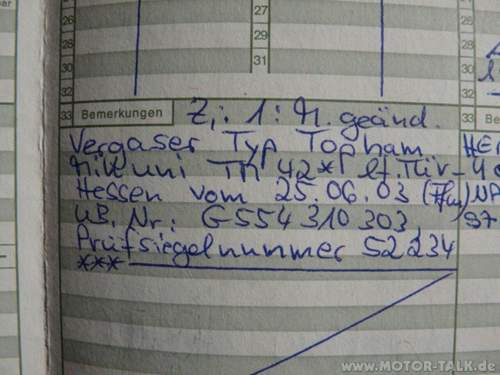 26
27
28
29
30
31
32
33 Bemerkungen Z.: 1: M. geänd.
Vergaser Typ Topham
Mikuni TM 42* lt. TÜV-
Hessen vom 25.06.03 (Ffm)
UB. Nr.: G554310303,
97
Prüfsiegelnummer 52234
***
www.MOTOR-TALK.de